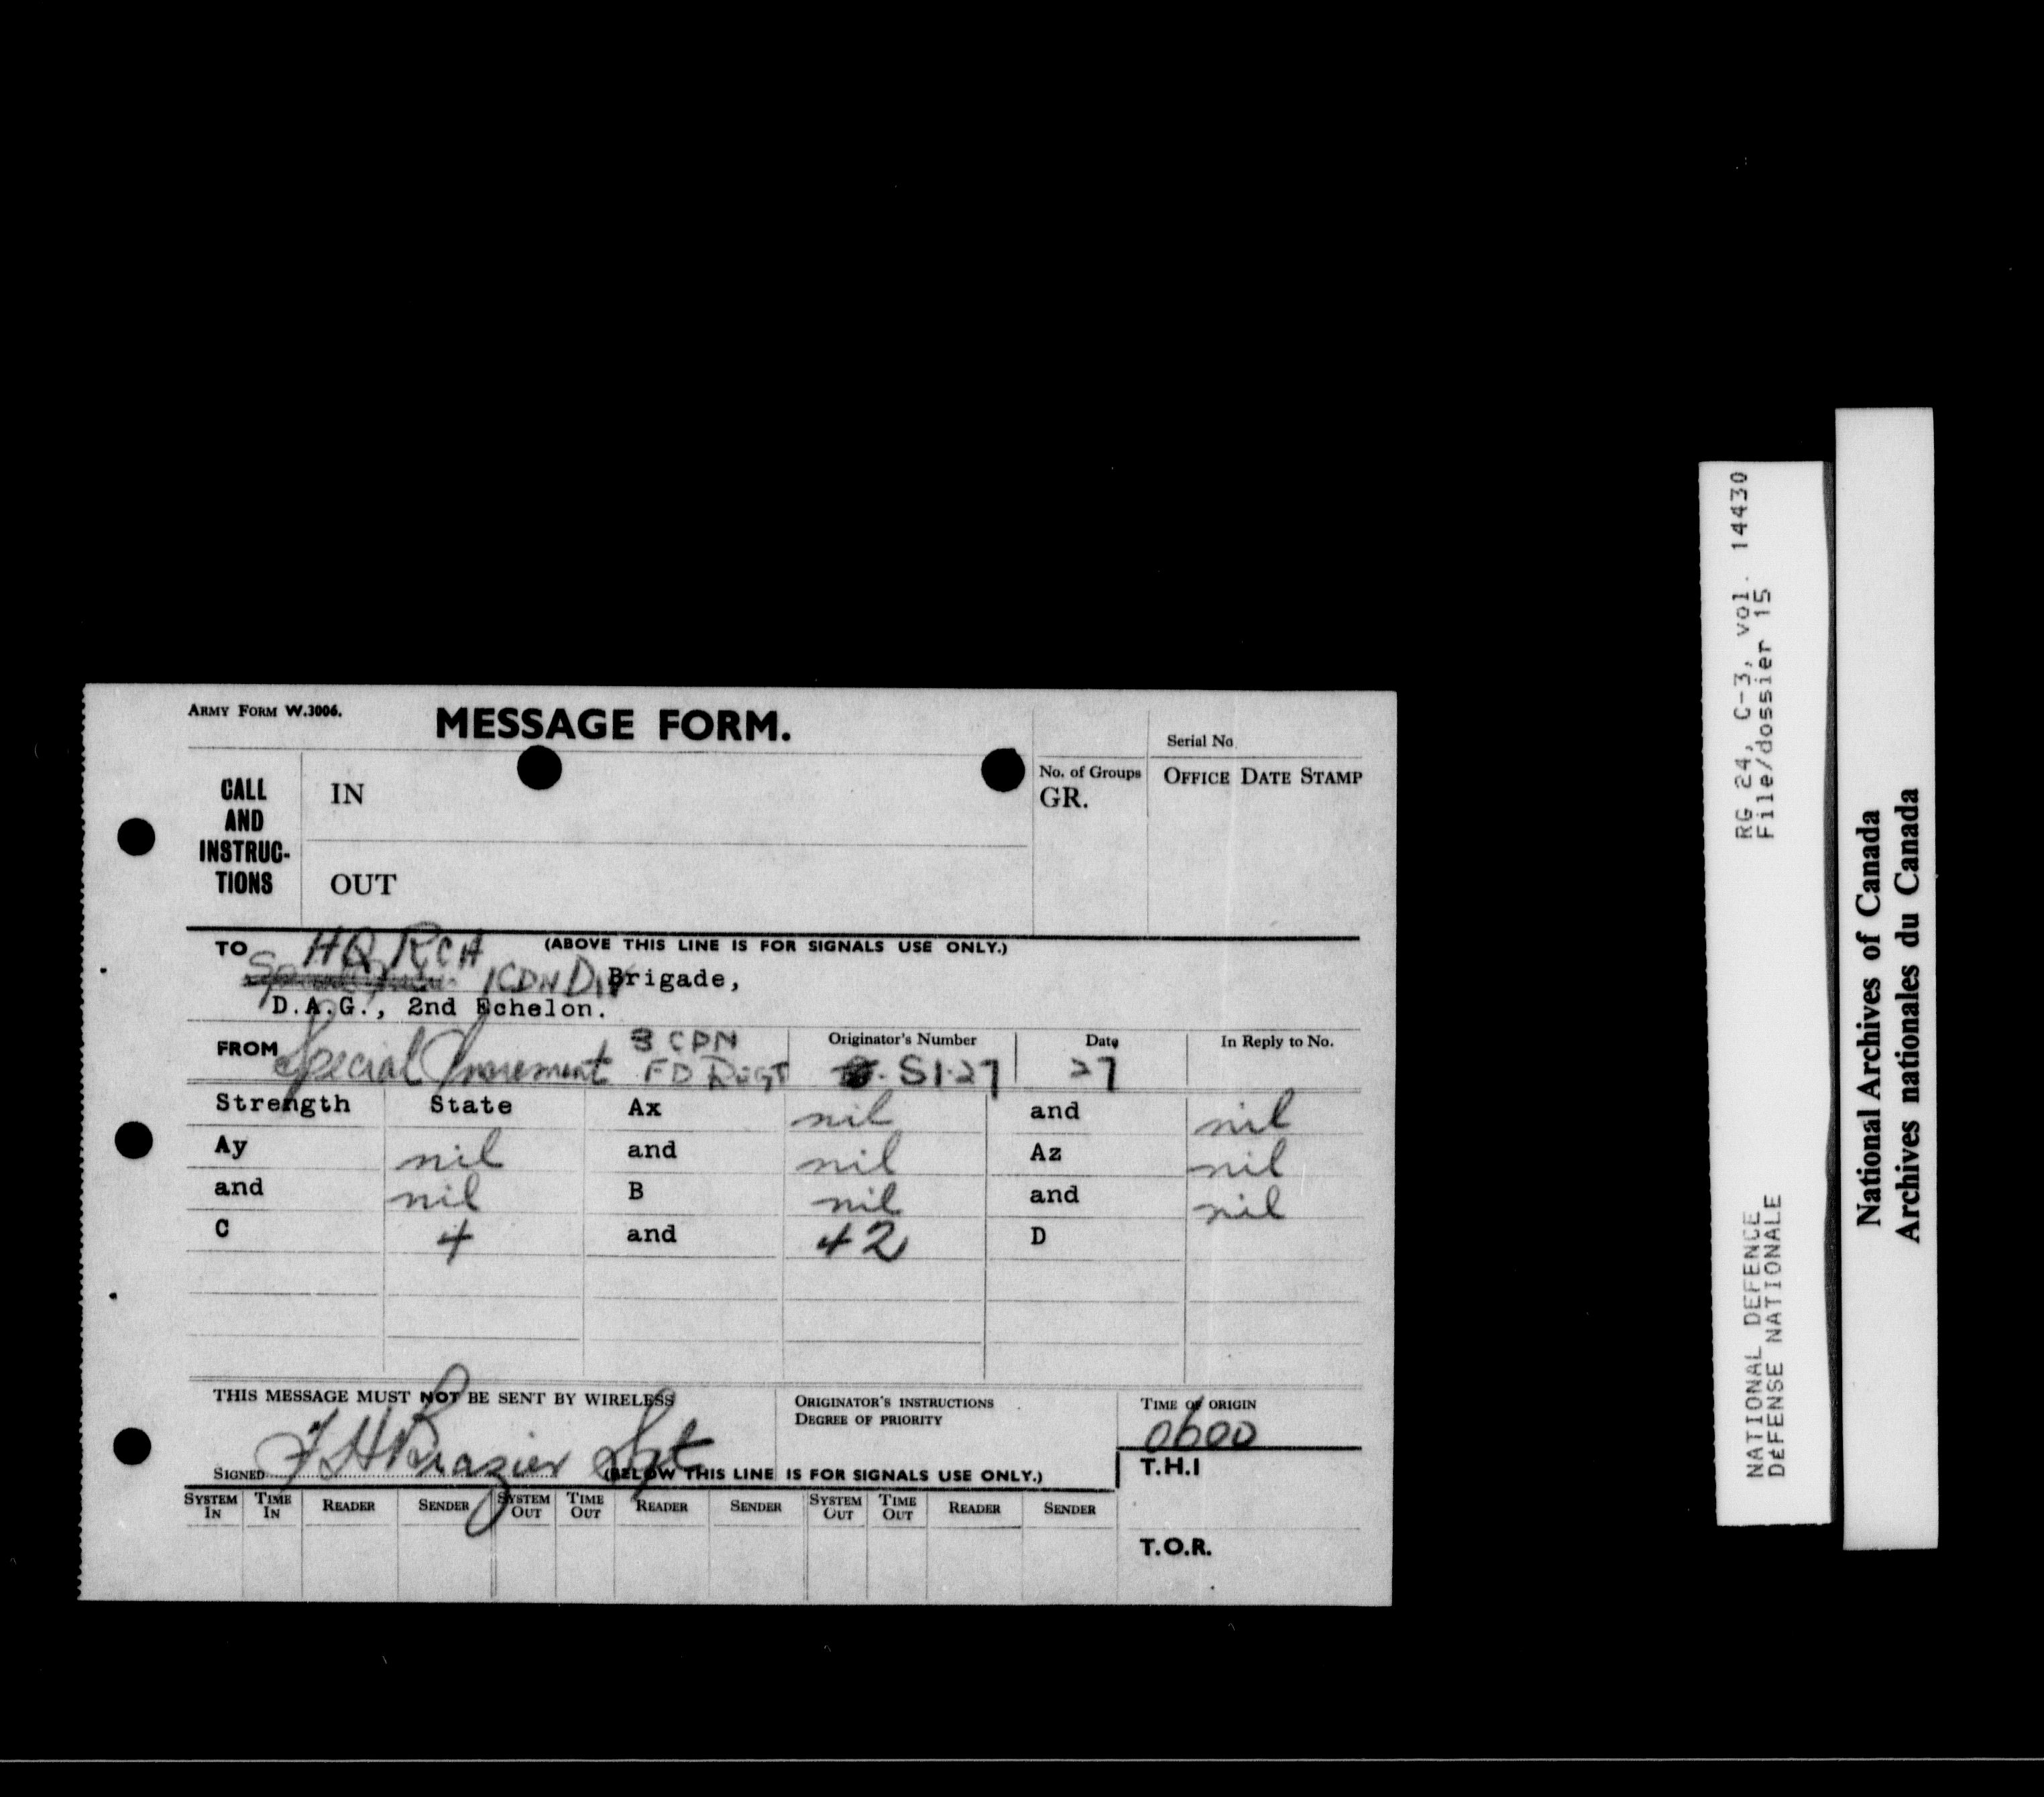 ARMY FORM W.3006.
MESSAGE FORM.
Serial No.
CALL AND INSTRUC-TIONS
IN
No. of Groups
GR.
OFFICE DATE STAMP
OUT
TO HQ RCA (ABOVE THIS LINE IS FOR SIGNALS USE ONLY.)
1 CDN DIV Brigade,
D.A.G., 2nd Echelon.
FROM Special Increment 3 CDN FD REGT
Originator's Number
S1-27
Date
27
In Reply to No.
Strength State Ax nil and nil
Ay nil and nil Az nil
and nil B nil and nil
C 4 and 42 D
THIS MESSAGE MUST NOT BE SENT BY WIRELESS
ORIGINATOR'S INSTRUCTIONS
DEGREE OF PRIORITY
TIME OF ORIGIN
0600
SIGNED F H Brazier Sgt
(BELOW THIS LINE IS FOR SIGNALS USE ONLY.)
T.H.I
SYSTEM IN TIME IN READER SENDER SYSTEM OUT TIME OUT READER SENDER SYSTEM OUT TIME OUT READER SENDER
T.O.R.
RG 24, C-3, vol. 14430
File/dossier 15
NATIONAL DEFENCE
DéFENSE NATIONALE
National Archives of Canada
Archives nationales du Canada